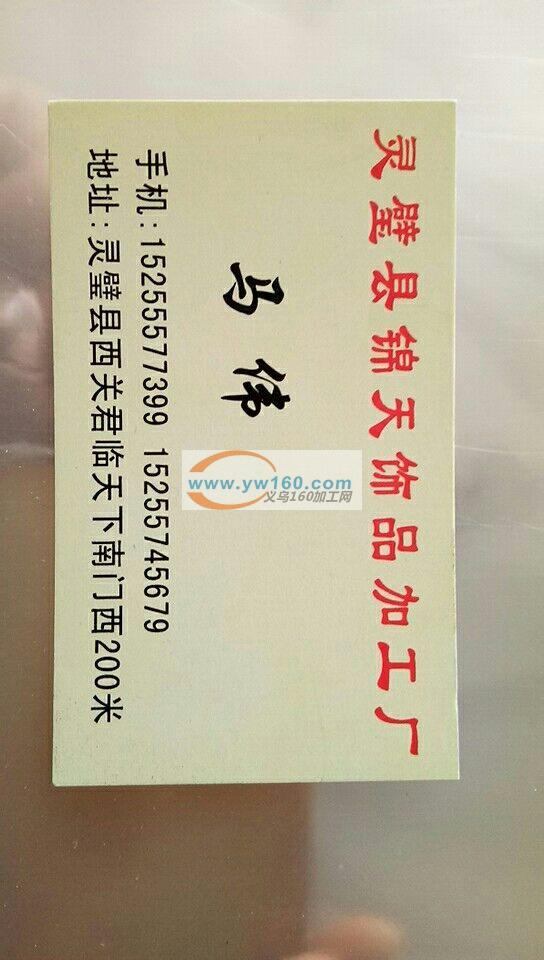 灵璧县锦天饰品加工厂
马伟
手机:15255577399 15255745679
地址:灵璧县西关君临天下南门西200米
www.yw160.com
义乌160加工网